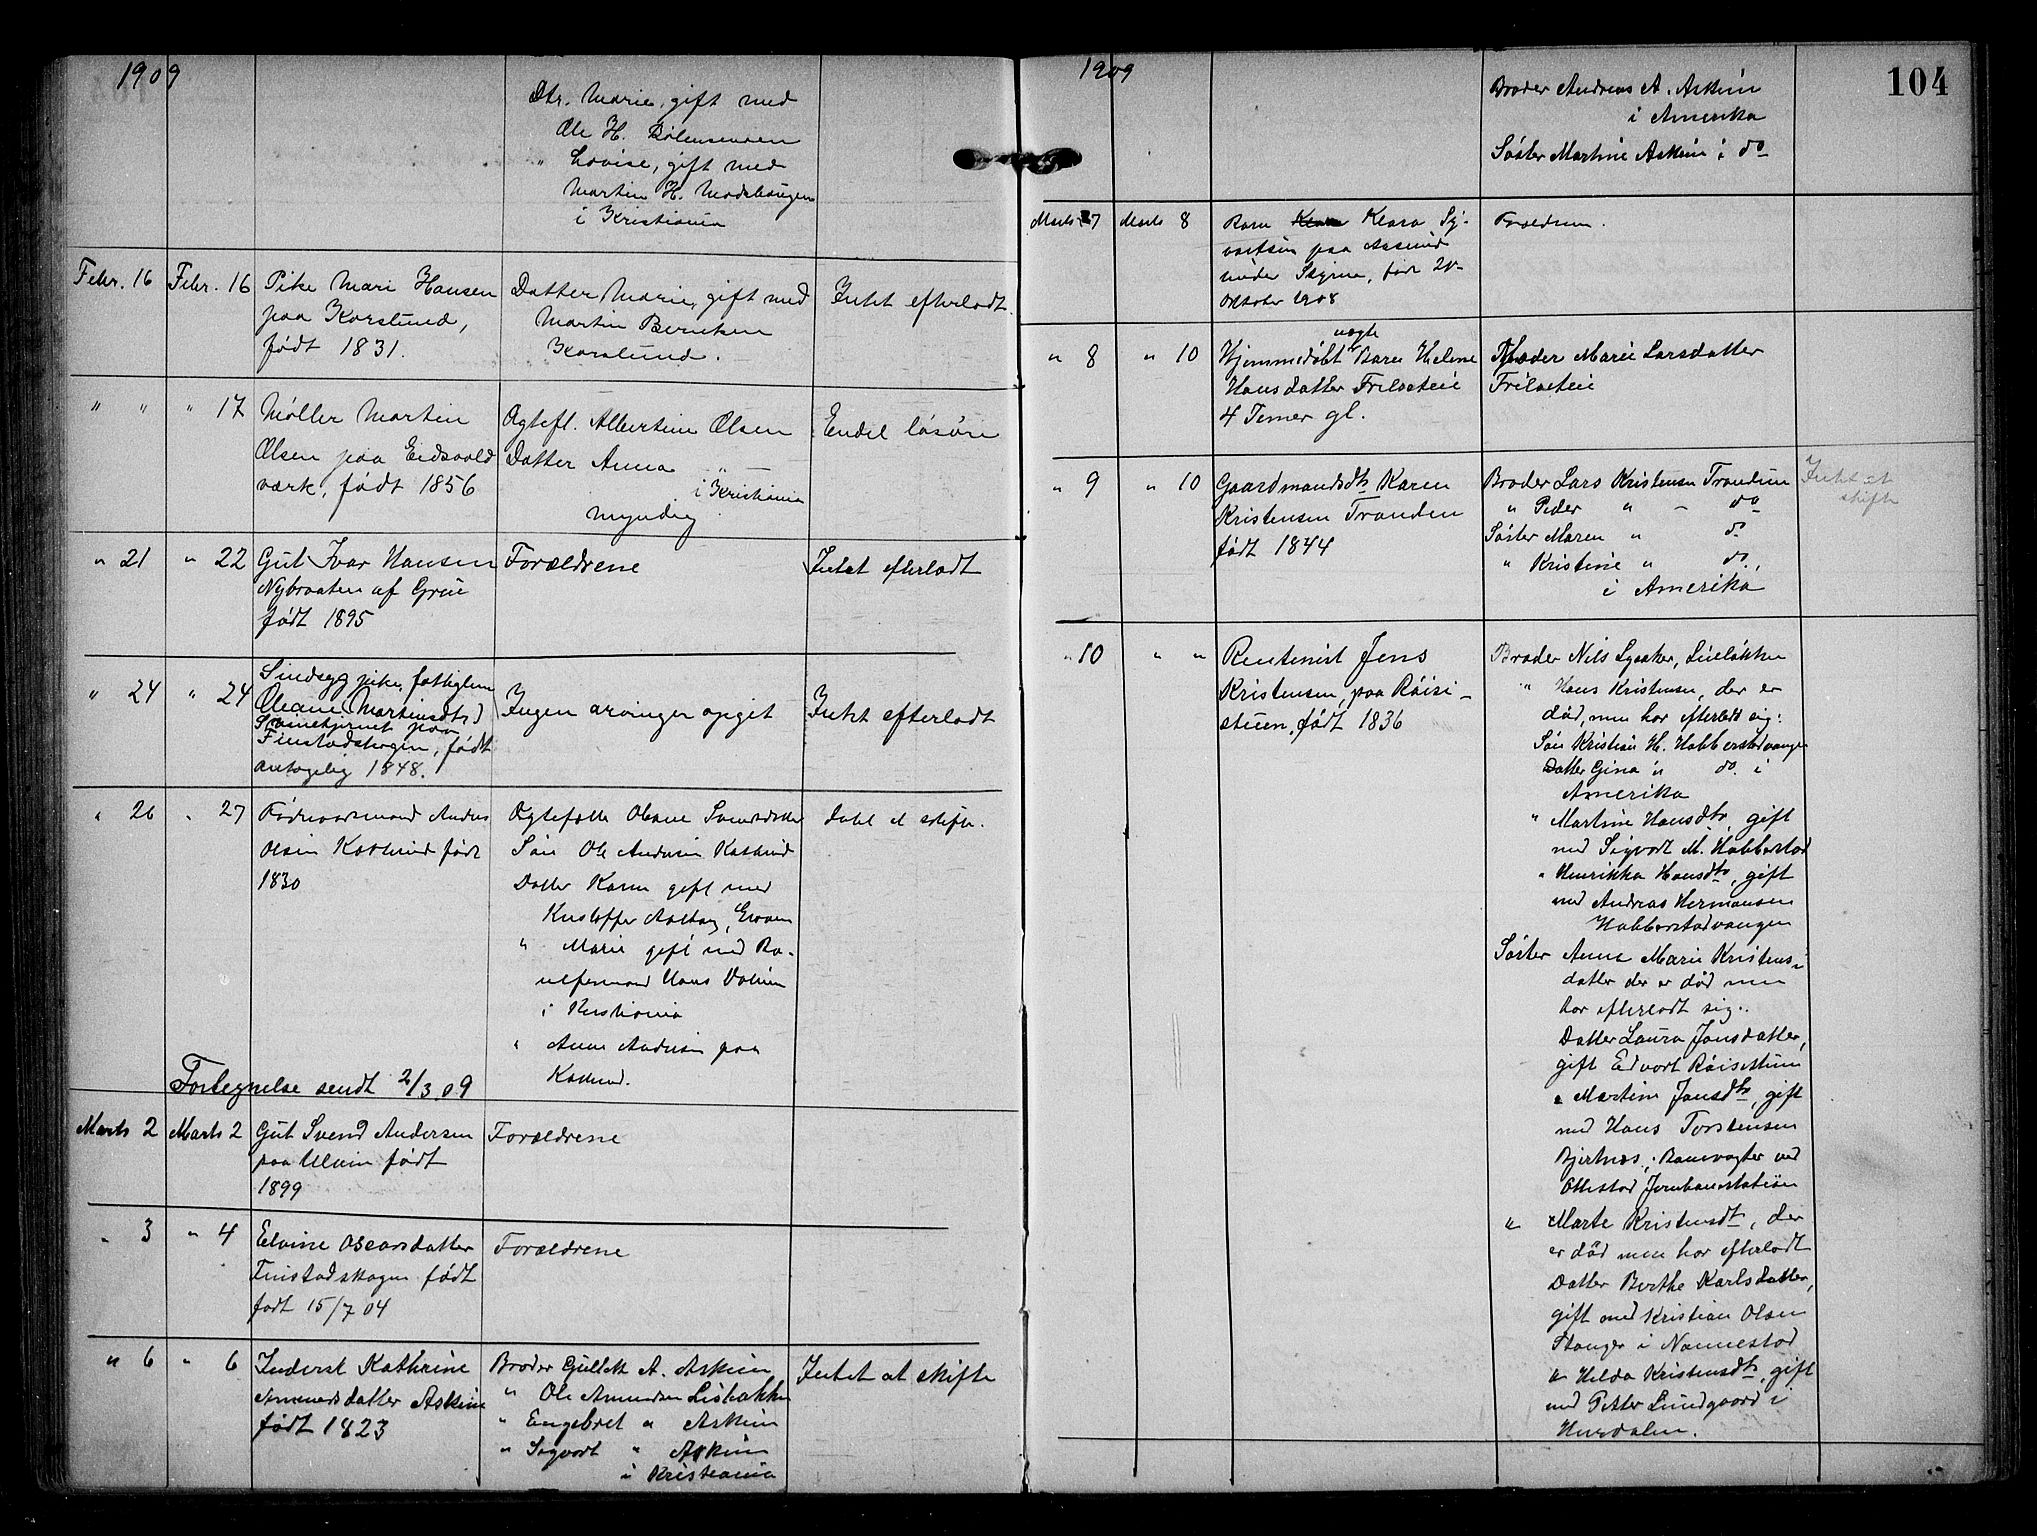 1909
Dtr. Marie, gift med
Ole H.
" Lovise, gift med
Martin H. Modshaugen
i Kristiania
Febr. 16 Febr. 16 Pike Mari Hansen
paa Korslund,
født 1831.
Datter Marie, gift med
Martin Berntsen
Korslund.
Intet efterladt.
" " " 17 Møller Martin
Olsen paa Eidsvold
værk, født 1856
Ægtefl. Albertine Olsen
Datter Anna " —
i Kristiania
myndig
Endel løsøre
" 21 " 22 Gut Ivar Hansen
Nybraaten af Grue
født 1895
Forældrene
Intet efterladt
" 24 " 24 Sindsyg pike, fattiglem
Oleane (Martinsdtr)
Svinetjernet paa
Finstadskogen, født
antagelig 1848.
Ingen arvinger opgit
Intet efterladt
" 26 " 27 Føderaadsmand Anders
Olsen født
1830
Ægtefælle Oleane
Søn Ole Andersen
Datter Karen gift med
Kristoffer
" Marie gift med
Hans
i Kristiania
" Anne Andersen paa
Intet at skifte.
Fortegnelse sendt 2/3 09
Marts 2 Marts 2 Gut Svend Andersen
paa Ulvin født
1899
Forældrene
" 3 " 4 Elvine Oscarsdatter
Finstadskogen født
født 15/7 04
Forældrene
" 6 " 6 Inderst Kathrine
Amundsdatter Askim
født 1823
Broder Gullik A. Askim
" Ole Amundsen Lisbakken
" Engebret " Askim
" Sigvart " Askim
i Kristiania
Intet at skifte
1909
104
Broder Andreas A. Askim
i Amerika
Søster Martine Askim i do
Marts 7 Marts 8 Barn Klara Sy-
vertsen paa
under, født 20
Oktober 1908
Forældrene.
" 8 " 10 Hjemmedøbt uægte Barn Helene
Hansdatter Frilseteie
4 Timer gl.
Moder Marie Larsdatter
Frilseteie
" 9 " 10 Gaardmandsdtr Karen
Kristensen Tranden
født 1844
Broder Lars Kristensen Trandum
" Peder " - do
Søster Maren " do
" Kristine " do,
i Amerika
Intet at
skifte
" 10 " " Rentenist Jens
Kristensen, paa Røisi-
stuen, født 1836
Broder Nils
" Hans Kristensen, der er
død, men har efterladt sig:
Søn Kristian H. Habberstadvangen
Datter Gina " do. i
Amerika
" Martine Hansdtr, gift
med Sigvart M. Habberstad
" Henrikka Hansdtr, gift
med Andreas Hermansen
Habberstadvangen
Søster Anne Marie Kristens-
datter der er død men
har efterladt sig:
Datter Laura Jensdatter,
gift Edvart Røisestuen
" Martine Jensdtr, gift
med Hans Torstensen
Bjertnæs, Banevogter ved
Ottestad Jernbanestation
" Marte Kristensdtr, der
er død men har efterladt
Datter Berthe Karlsdatter,
gift med Kristian Olsen
Stanger i Nannestad
" Hilda Kristensdtr, gift
med Petter Lundgaard i
Hurdalen.